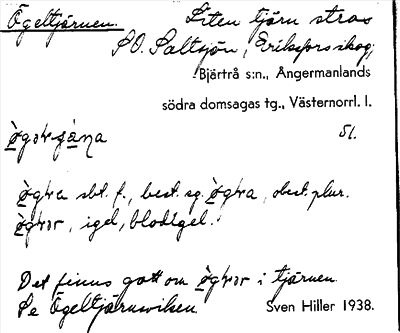 Ögeltjärnen.
Liten tjärn strax
SO. Saltsjön, Eriksfors skog,
Bjärtrå s:n., Ångermanlands
södra domsagas tg., Västernorrl. l.
51.
sbt. f., best. sg. , obest. plur.
, igel, blodigel.
Det finns gott om i tjärnen.
Se Ögeltjärnsviken
Sven Hiller 1938.